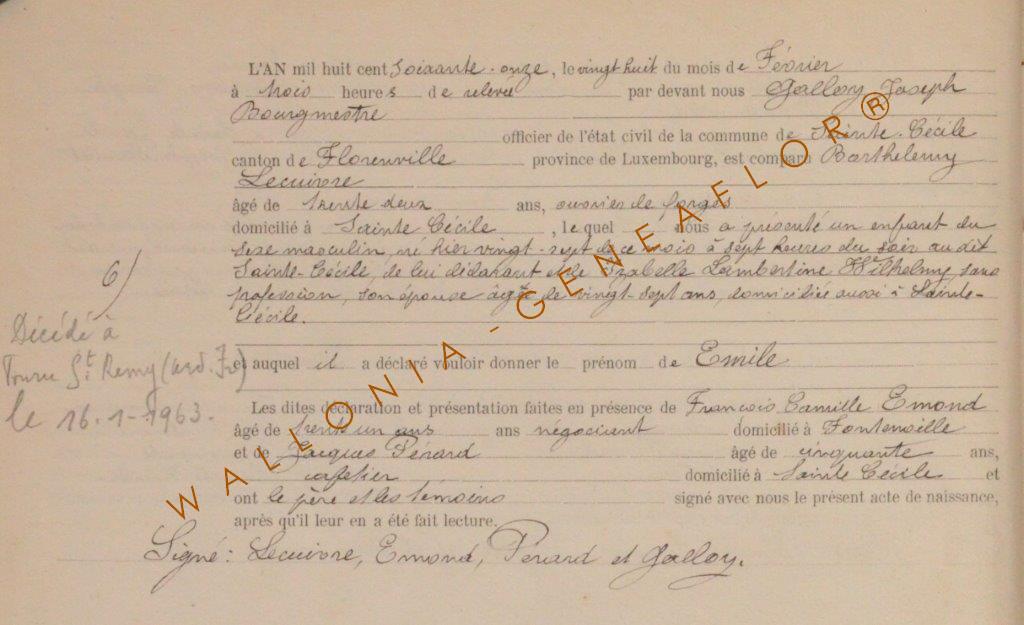 L'AN mil huit cent Soixante-onze, le vingt huit du mois de Février
à trois heures de relevée par devant nous Galloy Joseph
Bourgmestre
officier de l'état civil de la commune de Sainte-Cécile
canton de Florenville province de Luxembourg, est comparu Barthelemy
Lecuivre
âgé de trente deux ans, ouvrier de forges
domicilié à Sainte Cécile, lequel nous a présenté un enfant du
sexe masculin, né hier vingt-sept de ce mois à sept heures du soir au dit
Sainte-Cécile, de lui déclarant et de Izabelle Lambertine Wilhelmy, sans
profession, son épouse âgée de vingt-sept ans, domiciliée aussi à Sainte-
Cécile.
et auquel il a déclaré vouloir donner le prénom de Emile
Les dites déclaration et présentation faites en présence de François Camille Emond
âgé de trente un ans ans négociant domicilié à Fontenoille
et de Jacques Pérard âgé de cinquante ans,
cafetier domicilié à Sainte Cécile et
ont le père et les témoins signé avec nous le présent acte de naissance,
après qu'il leur en a été fait lecture.
Signé: Lecuivre, Emond, Pérard et Galloy.
6/
Décédé à
St. Remy (ard. Fr)
le 16.1-1963.
WALLONIA - GENEAFLOR®